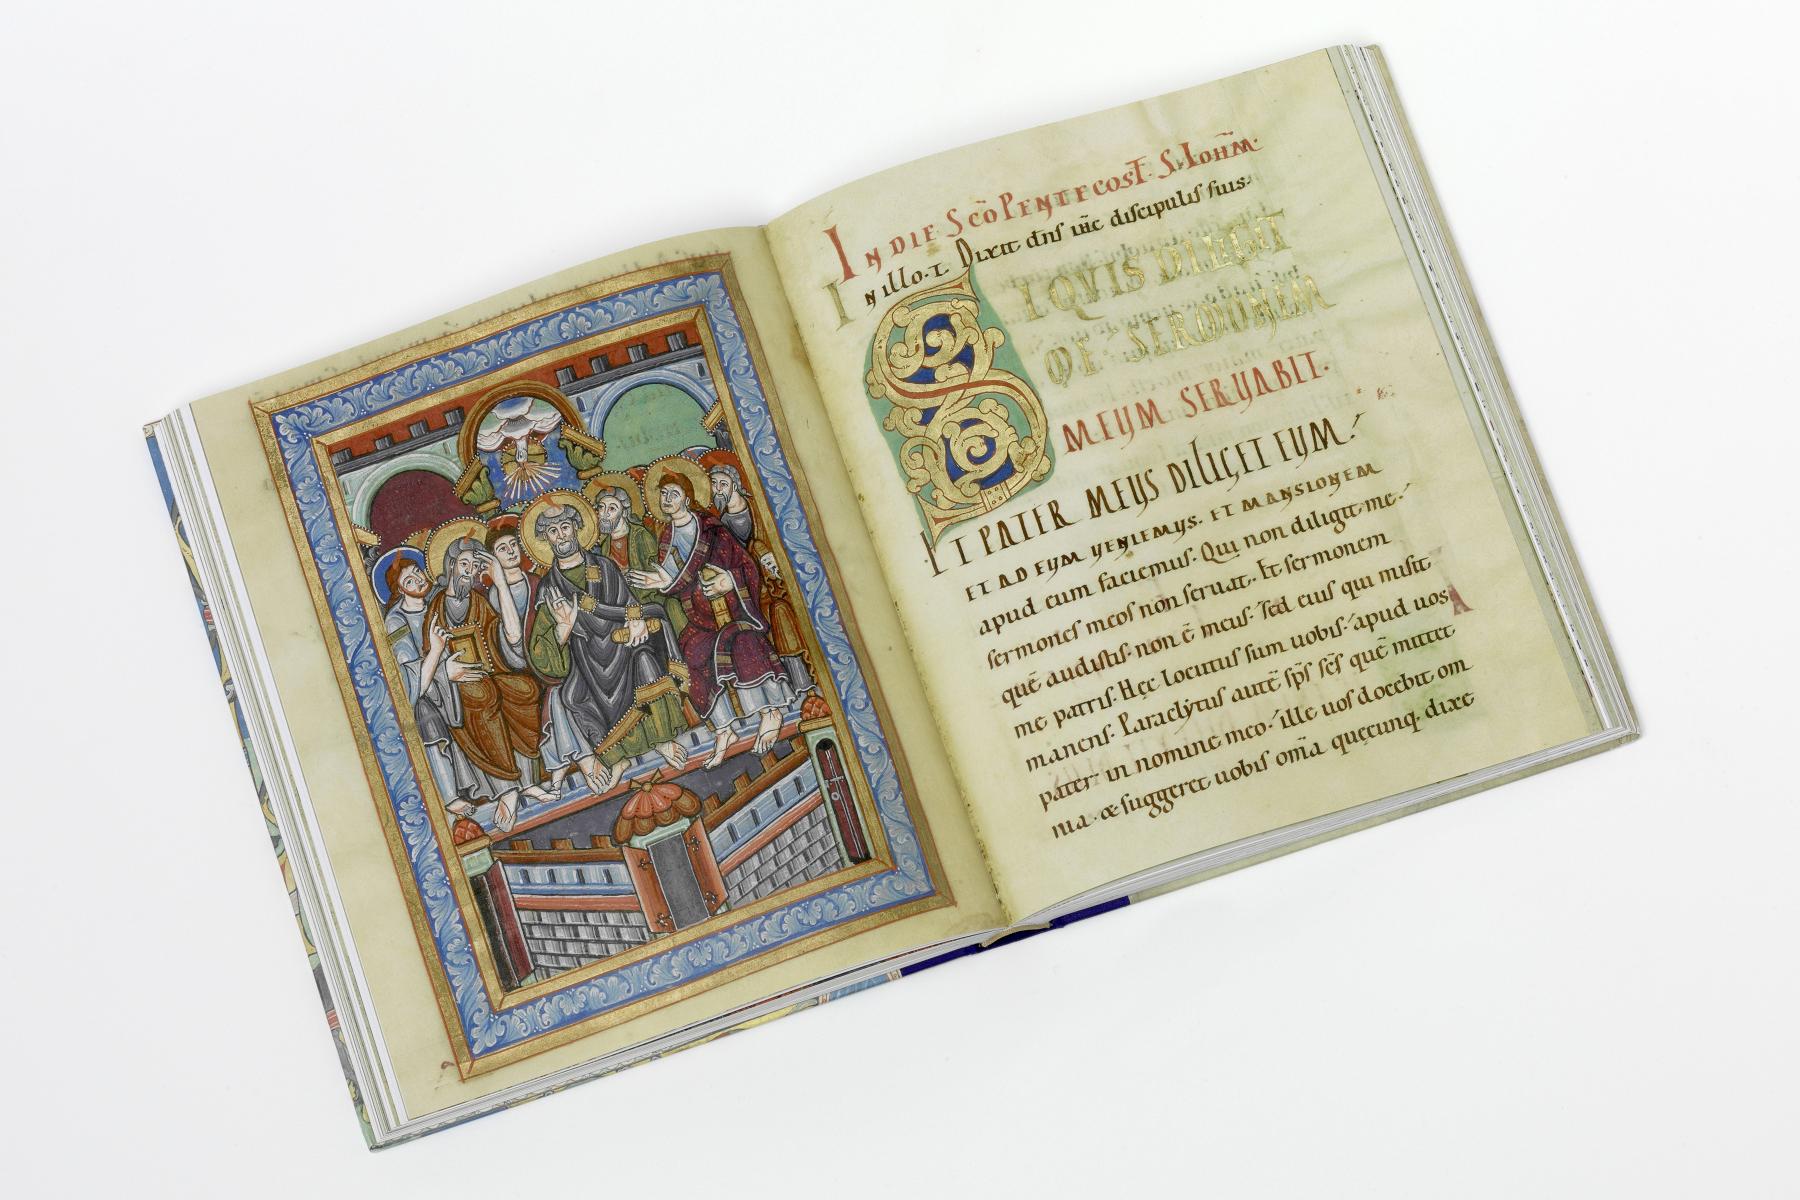 IN DIE SCŌ PENTECOST. S. IOHM̄.
In illo. t. Dixit dn̄s ih̄c discipulis suis.
SI QVIS DILIGIT
ME SERMONEM
MEUM SERUABIT.
ET PATER MEUS DILIGET EUM.
ET AD EUM UENIEMUS. ET MANSIONEM
apud eum faciemus. Qui non diligit me.
sermones meos non seruat. Et sermonem
quē audistis. non ē meus. sed eius qui misit
me patris. Hęc locutus sum uobis. apud uos
manens. Paraclytus autē sp̄s sc̄s quē mittet
pater in nomine meo. ille uos docebit om
nia. & suggeret uobis om̄a quęcunq. dixe